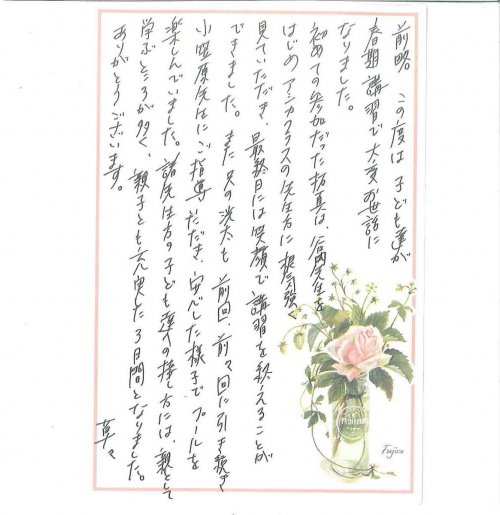 前略 この度は 子ども達が
春期講習で大変お世話に
なりました。
初めての参加だった拓真は、谷岡先生を
はじめ アシカクラスの先生方に 根気強く
見ていただき、最終日には笑顔で講習を終えることが
できました。また兄の滉太も 前回、前々回に引き続き
小笠原先生にご指導いただき、安心した様子でプールを
楽しんでいました。諸先生方の子ども達への接し方には、親として
学ぶところが多く、親子とも充実した3日間となりました。
ありがとうございます。
草々
Fujico